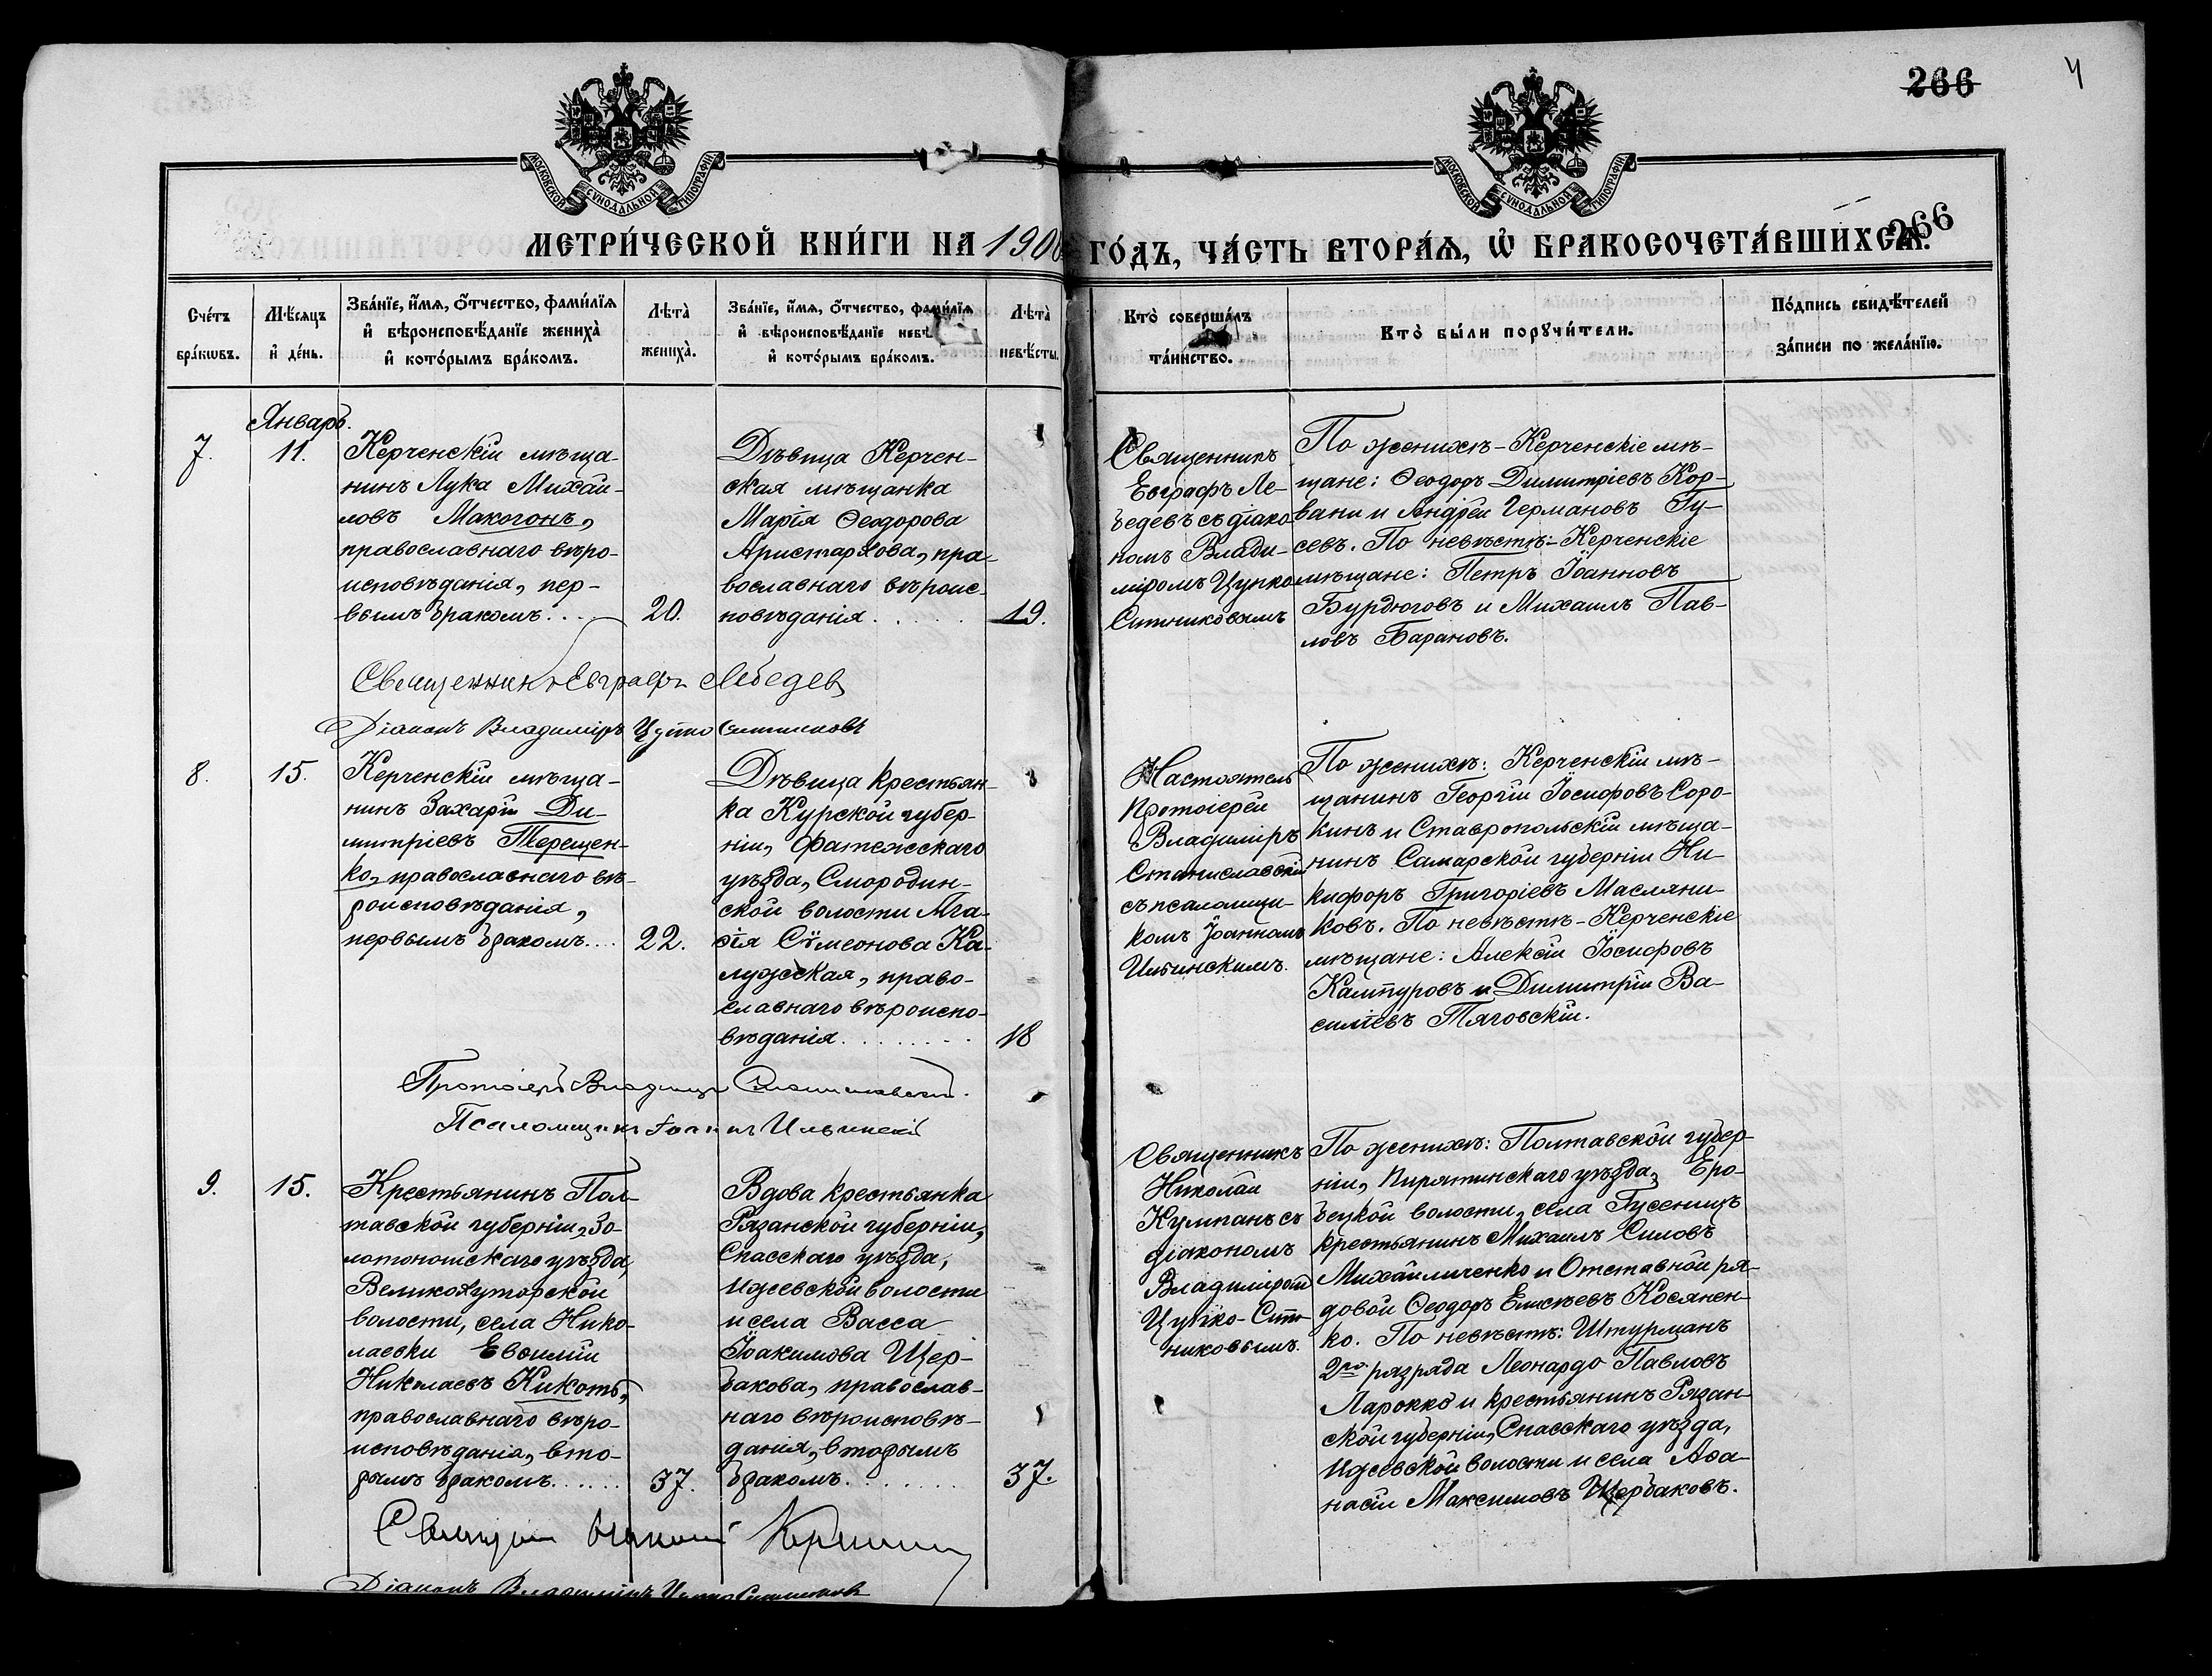 266
4
МОСКОВСКОЙ СѴНОДАЛЬНОЙ ТИПОГРАФІИ
МОСКОВСКОЙ СѴНОДАЛЬНОЙ ТИПОГРАФІИ
МЕТРИ́ЧЕСКОЙ КНИ́ГИ НА 190
ГО́ДЪ, ЧА́СТЬ ВТОРА́Ѧ, Ѽ БРАКОСОЧЕТА́ВШИХСѦ.
266
Сче́тъ бра́кѡвъ.
Мѣ́сяцъ и҆ де́нь.
Зва́нїе, и҆́мѧ, ѻ҆́тчество, фами́лїѧ
и҆ вѣроисповѣ́данїе жениха̀
и҆ кото́рымъ бра́комъ.
Лѣ́та̀ жениха̀.
Зва́нїе, и҆́мѧ, ѻ҆́тчество, фами́лїѧ
и҆ вѣроисповѣ́данїе невѣ
и҆ кото́рымъ бра́комъ.
Лѣ́та̀ невѣ́сты.
Кто̀ соверша́лъ та́инство.
Кто̀ бы́ли порꙋчи́тели.
По́дпись свидѣ́телей
за́писи по жела́нїю.
Январь.
7.
11.
Керченскій мѣща-
нинъ Лука Михай-
ловъ Макогонъ,
православнаго вѣро-
исповѣданія, пер-
вымъ бракомъ...
20.
Дѣвица Керчен-
ская мѣщанка
Марія Ѳеодорова
Аристархова, пра-
вославнаго вѣроис-
повѣданія......
19.
Священникъ
Евграфъ Ле-
бедевъ съ діако-
номъ Влади-
міромъ Цупко
Ситниковымъ
По женихѣ - Керченскіе мѣ-
щане: Ѳеодоръ Димитріевъ Кор-
вани и Андрей Германовъ Гу-
севъ. По невѣстѣ: - Керченскіе
мѣщане: Петръ Іоанновъ
Бурдюговъ и Михаилъ Пав-
ловъ Барановъ.
Священникъ Евграфъ Лебедев
Діаконъ Владиміръ Цупко Ситниковъ
8.
15.
Керченскій мѣща-
нинъ Захарій Ди-
митріевъ Терещен-
ко, православнаго вѣ-
роисповѣданія,
первымъ бракомъ....
22.
Дѣвица крестьян-
ка Курской губер-
ніи, Фатежскаго
уѣзда, Смородин-
ской волости Ага-
ѳія Сѵмеонова Ка-
лужская, право-
славнаго вѣроиспо-
вѣданія.........
18
Настоятель
Протоіерей
Владиміръ
Станиславскій
съ псаломщи-
комъ Іоанномъ
Ильинскимъ.
По женихѣ: Керченскій мѣ-
щанинъ Георгій Іосифовъ Соро-
кинъ и Ставропольскій мѣща-
нинъ Самарской губерніи Ни-
кифоръ Григоріевъ Масляни-
ковъ. По невѣстѣ - Керченскіе
мѣщане: Алексій Іосифовъ
Кампуровъ и Димитрій Ва-
силіевъ Тяговскій.
Протоіерей Владиміръ Станиславскій.
Псаломщикъ Іоаннъ Ильинскій
9.
15.
Крестьянинъ Пол-
тавской губерніи, Зо-
лотоношскаго уѣзда,
Великохуторской
волости, села Нико-
лаевки Евѳимій
Николаевъ Кикоть,
православнаго вѣро-
исповѣданія, вто-
рымъ бракомъ......
37.
Вдова крестьянка
Рязанской губерніи,
Спасскаго уѣзда,
Ижевской волости
и села Васса
Іоакимова Щер-
бакова, православ-
наго вѣроисповѣ-
данія, вторымъ
бракомъ........
37.
Священникъ
Николай
Кумпанъ съ
діакономъ
Владиміромъ
Цупко-Сит-
никовымъ.
По женихѣ: Полтавской губер-
ніи, Пирятинскаго уѣзда, Еро-
бецкой волости, села Гусеницъ
крестьянинъ Михаилъ Силовъ
Михайличенко и Отставной ря-
довой Ѳеодоръ Елисѣевъ Косянен-
ко. По невѣстѣ: Штурманъ
2го разряда Леонардо Павловъ
Ларокко и крестьянинъ Рязан-
ской губерніи, Спасскаго уѣзда,
Ижевской волости и села Аѳа-
насій Максимовъ Щербаковъ.
Священ Николай
Діаконъ Владиміръ Цупко Ситниковъ